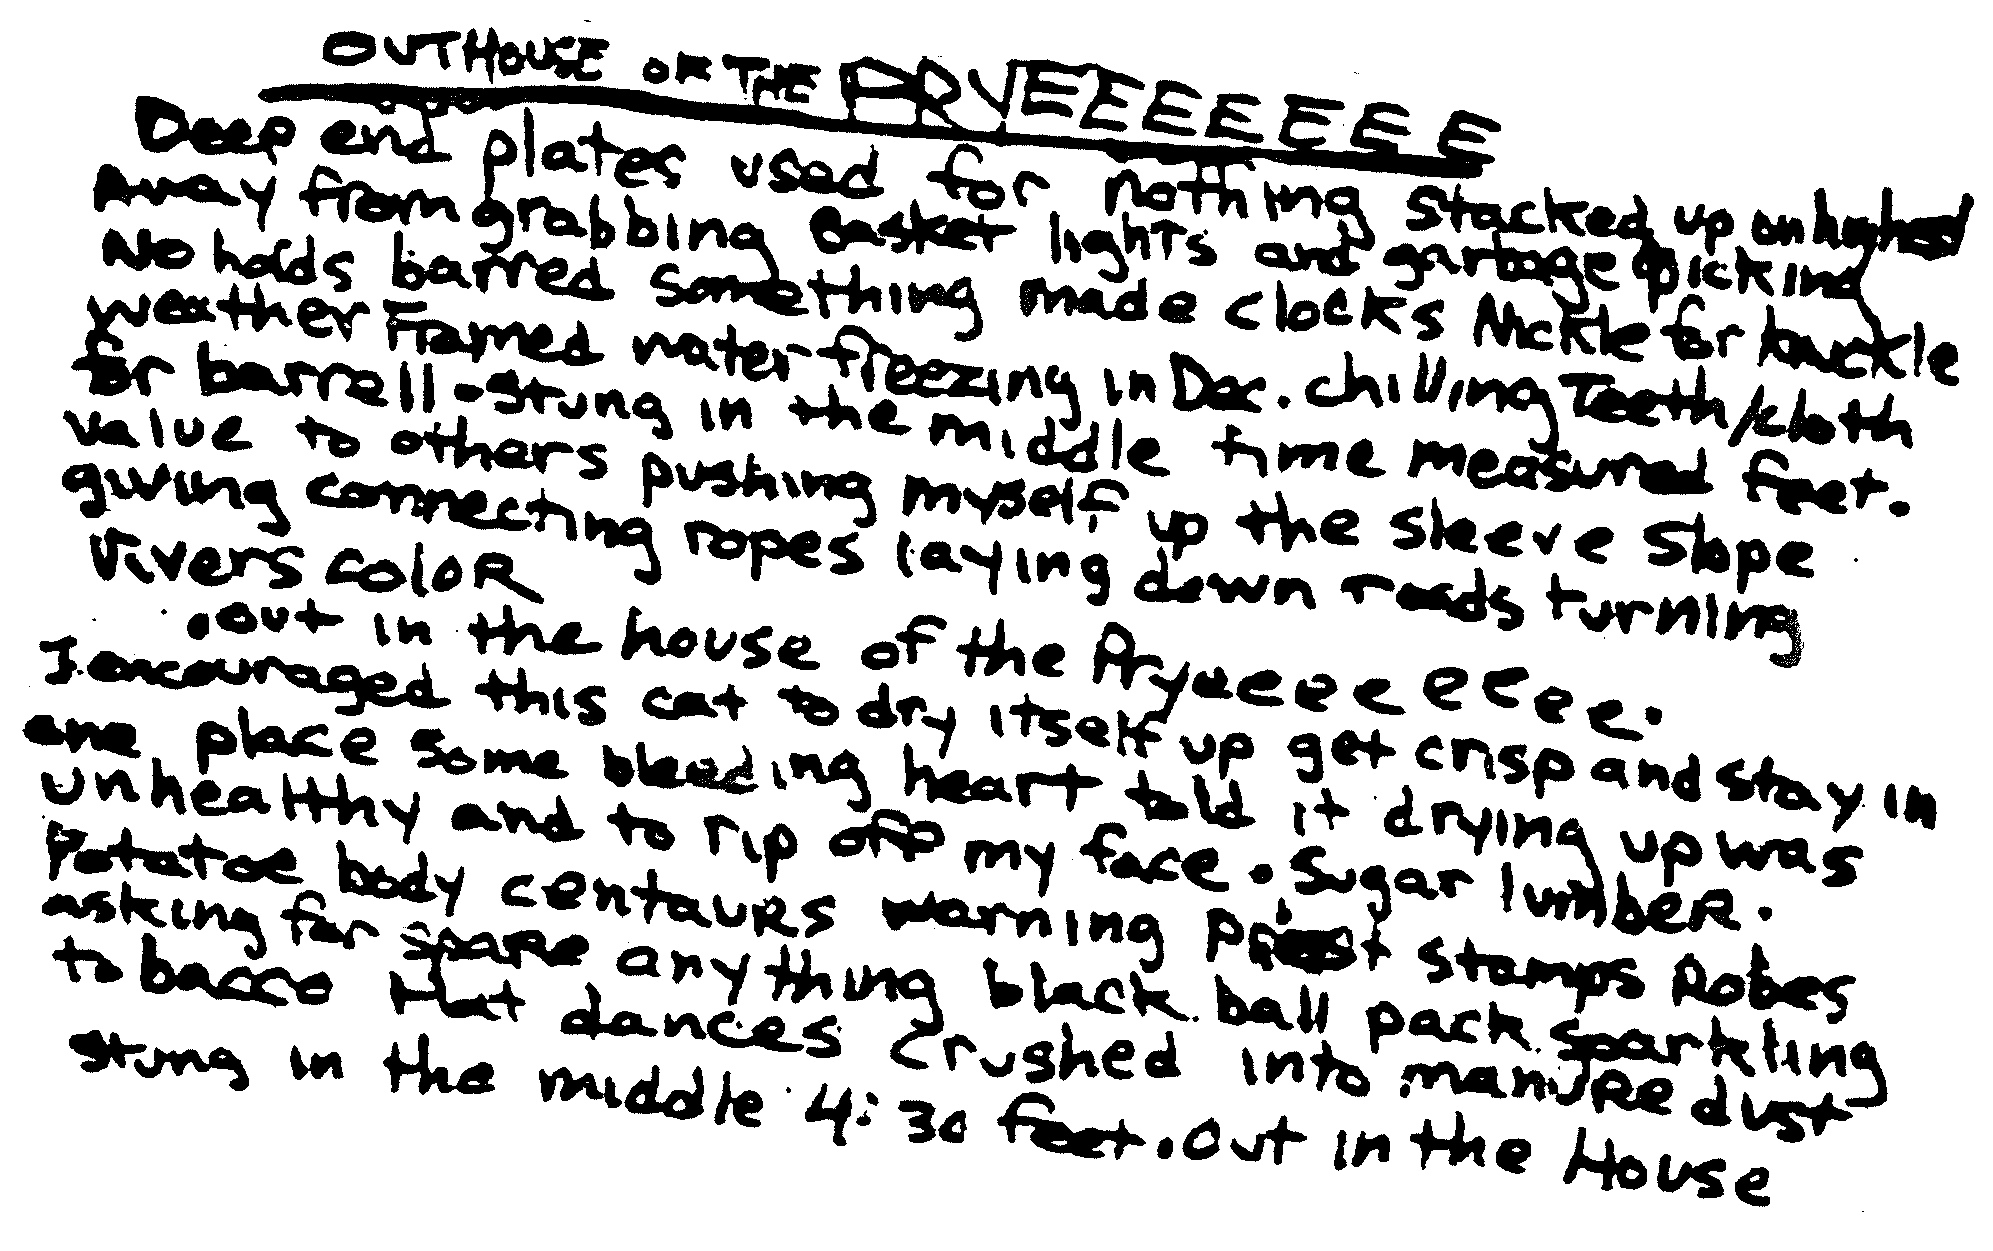 OUTHOUSE OF THE PRYEEEEEEE
Deep end plates used for nothing stacked up on
Away from grabbing Basket lights and garbage picking
No holds barred something made clocks Nickle for buckle
weather Framed water freezing in Dec. chilling Teeth/cloth
for barrell. Stung in the middle time measured feet.
value to others pushing myself up the sleeve slope
giving connecting ropes laying down roads turning
Vivers COloR
.out in the house of the Pryeeeeeeee.
I encouraged this cat to dry itself up get crisp and stay in
one place some bleeding heart told it drying up was
unhealthy and to rip off my face. Sugar lumbeR.
Potatoe body centauRs warning priest stamps Robes
asking for spaRe anything black ball pack sparkling
to bacco that dances crushed into manuRe dust
stung in the middle 4:30 feet. Out in the House